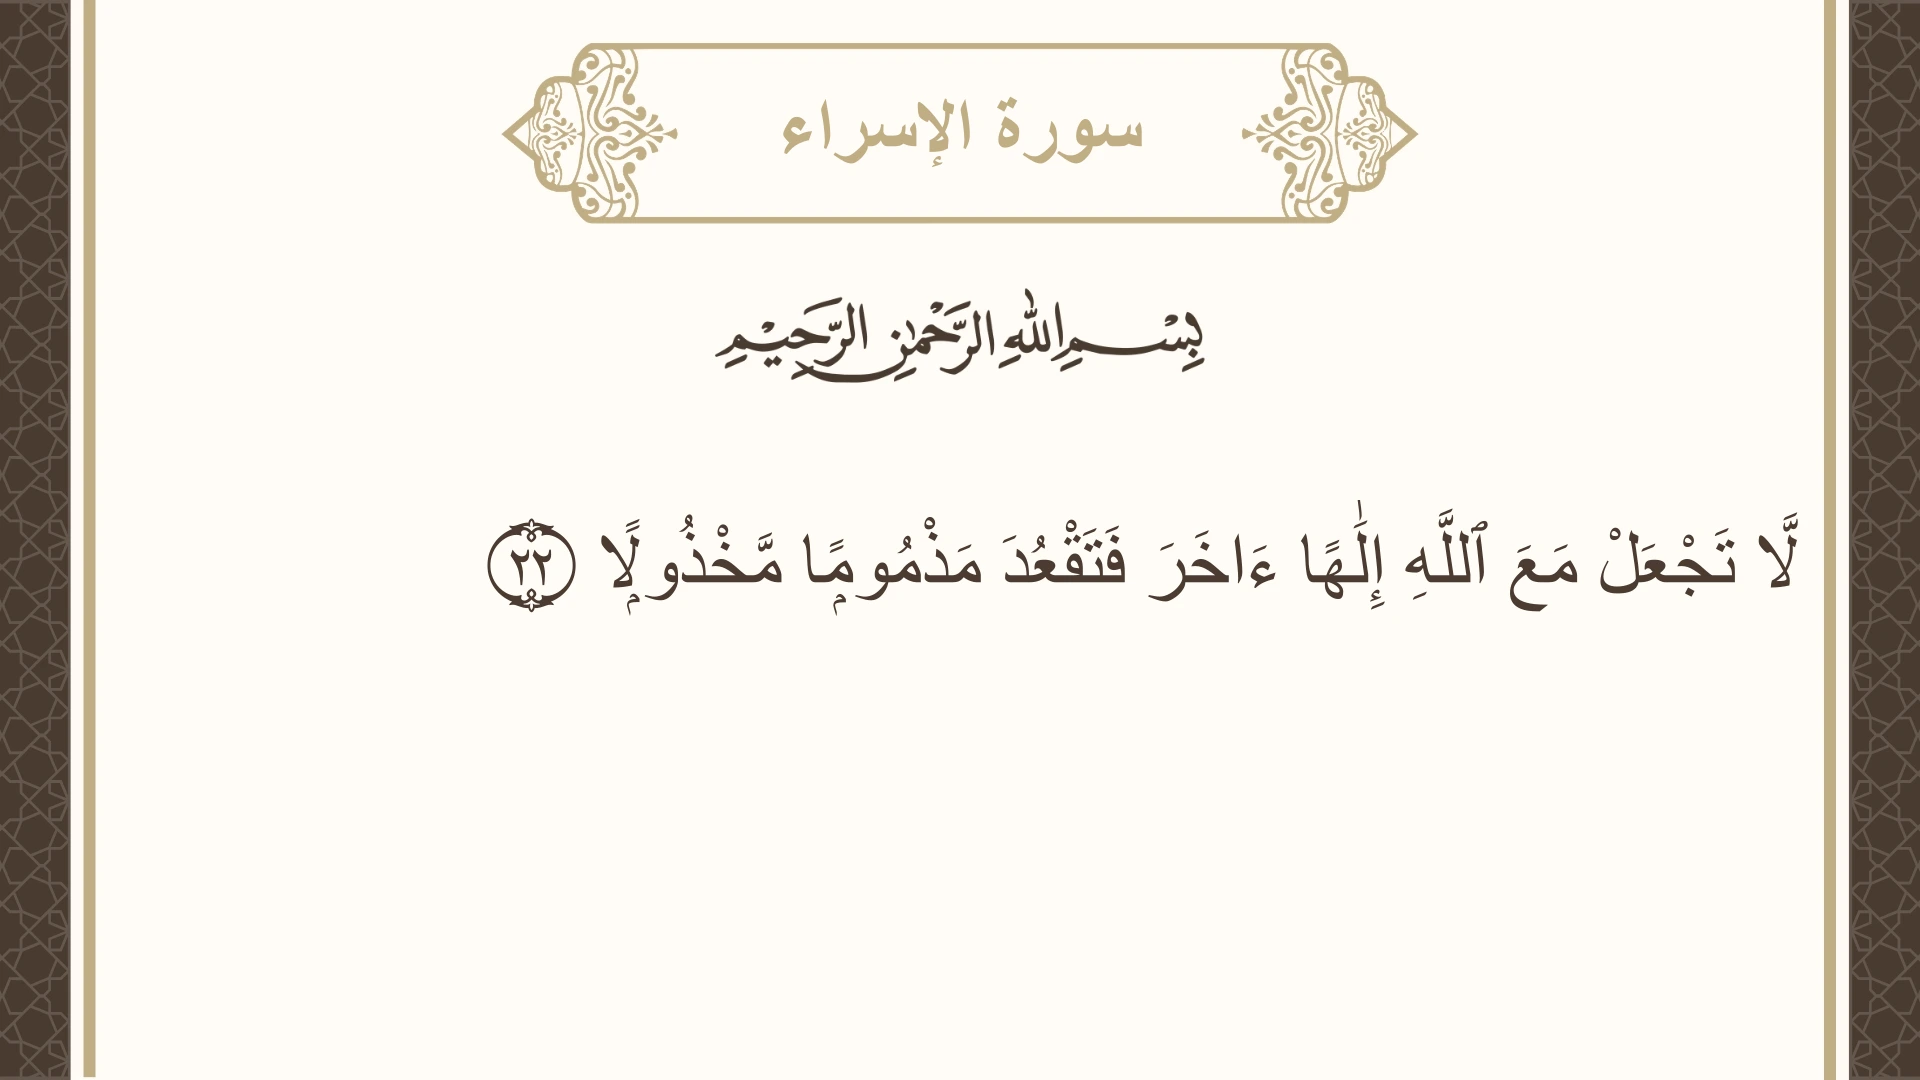 سورة الإسراء
بِسْمِ اللهِ الرَّحْمٰنِ الرَّحِيْمِ
لَّا تَجْعَلْ مَعَ ٱللَّهِ إِلَٰهًا ءَاخَرَ فَتَقْعُدَ مَذْمُومًۭا مَّخْذُولًۭا ٢٢